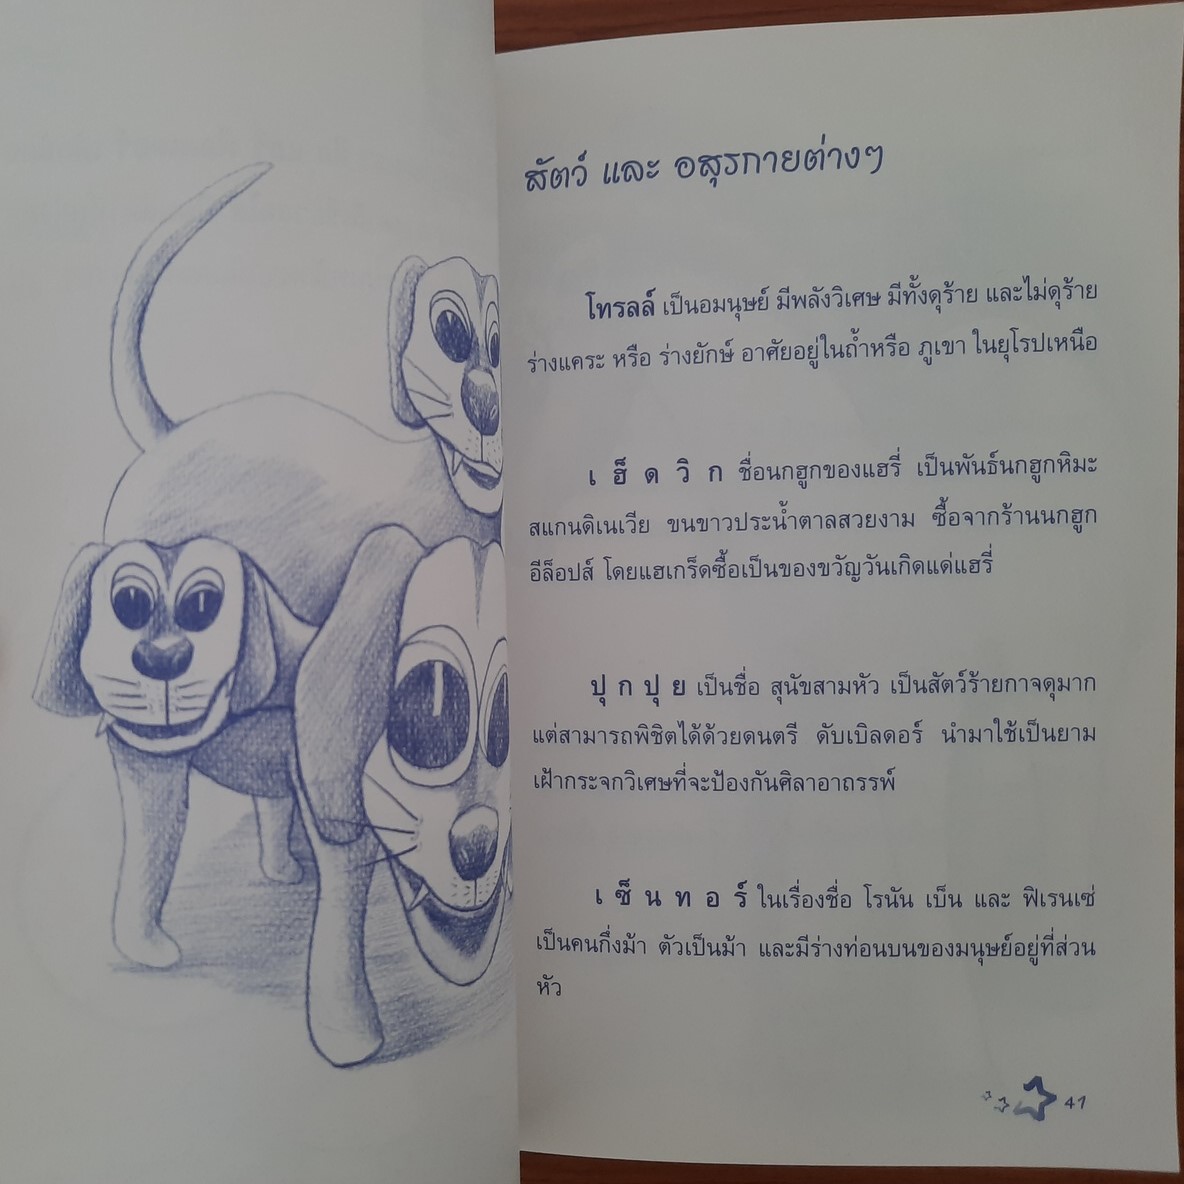 สัตว์ และ อสุรกายต่างๆ
โทรลล์ เป็นอมนุษย์ มีพลังวิเศษ มีทั้งดุร้าย และไม่ดุร้าย
ร่างแคระ หรือ ร่างยักษ์ อาศัยอยู่ในถ้ำหรือ ภูเขา ในยุโรปเหนือ
เ ฮ็ ด วิ ก ชื่อนกฮูกของแฮรี่ เป็นพันธ์นกฮูกหิมะ
สแกนดิเนเวีย ขนขาวประน้ำตาลสวยงาม ซื้อจากร้านนกฮูก
อีล็อปส์ โดยแฮเกร็ดซื้อเป็นของขวัญวันเกิดแด่แฮรี่
ปุ ก ปุ ย เป็นชื่อ สุนัขสามหัว เป็นสัตว์ร้ายกาจดุมาก
แต่สามารถพิชิตได้ด้วยดนตรี ดับเบิลดอร์ นำมาใช้เป็นยาม
เฝ้ากระจกวิเศษที่จะป้องกันศิลาอาถรรพ์
เ ซ็ น ท อ ร์ ในเรื่องชื่อ โรนัน เบ็น และ ฟิเรนเซ่
เป็นคนกึ่งม้า ตัวเป็นม้า และมีร่างท่อนบนของมนุษย์อยู่ที่ส่วน
หัว
41